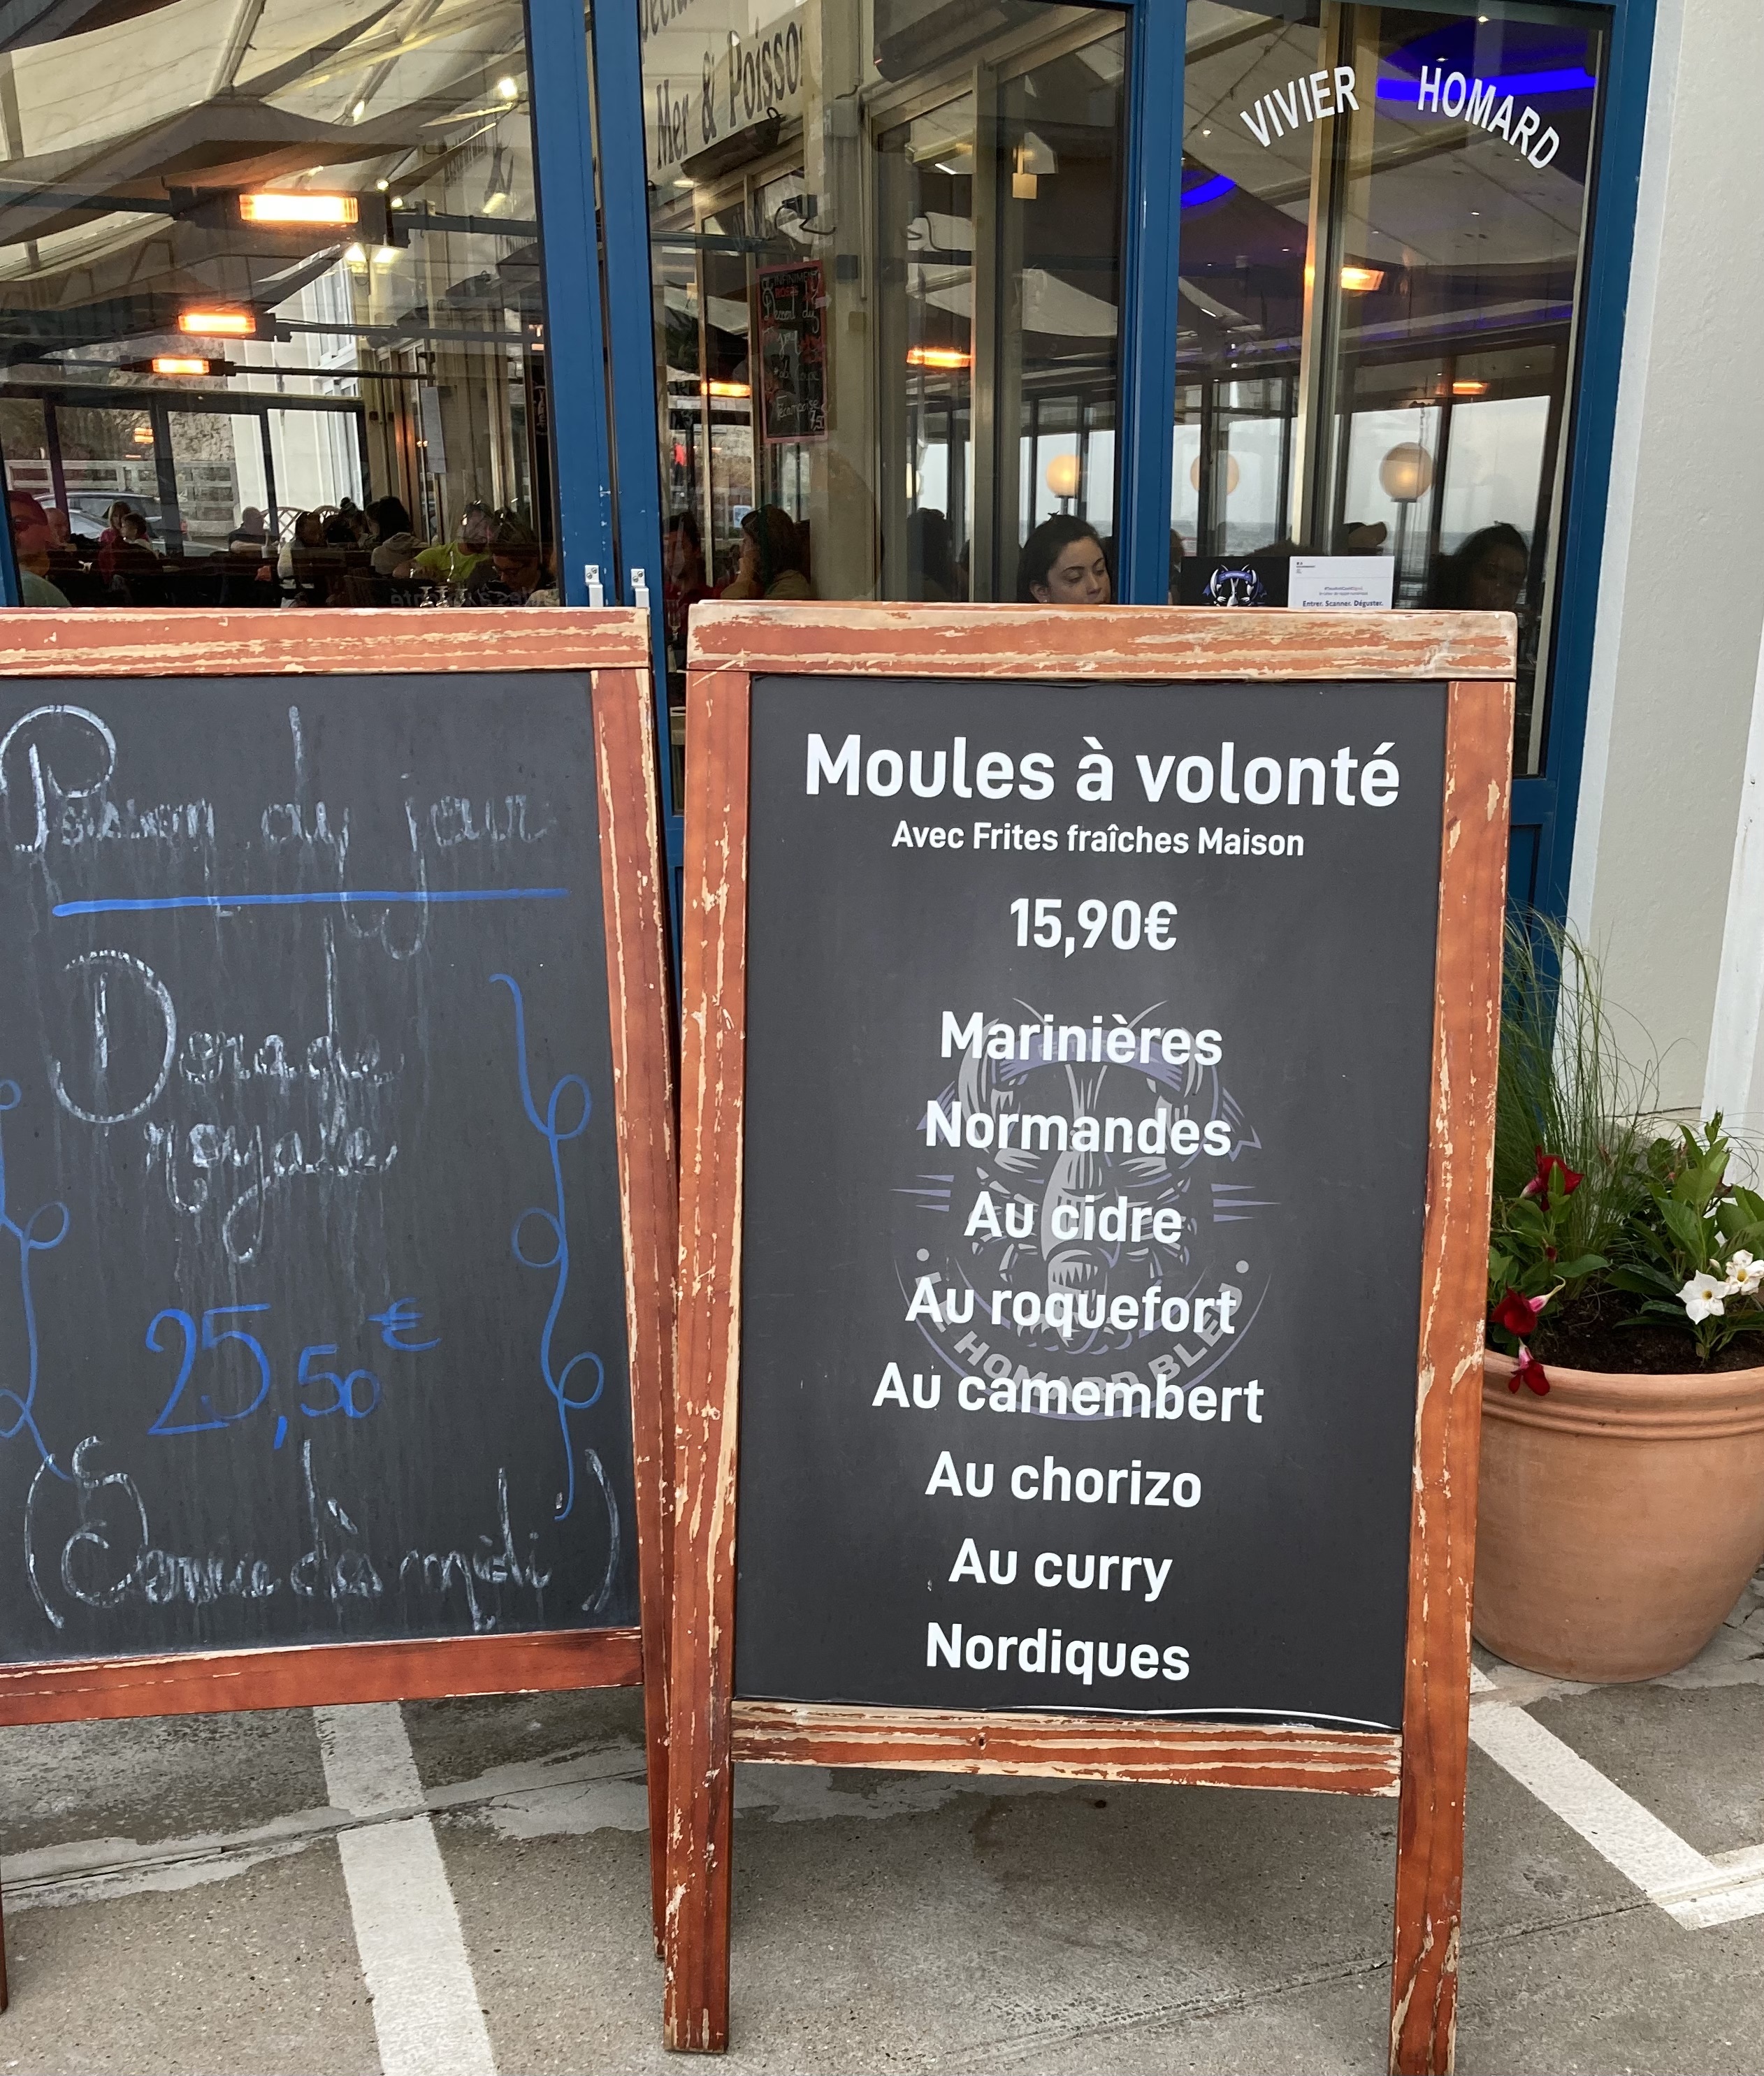 Mer & Poisso
VIVIER HOMARD
Entrer. Scanner. Déguster.
Poisson du jour
Dorade
royale
25,50€
dès midi)
Moules à volonté
Avec Frites fraîches Maison
15,90€
Marinières
Normandes
Au cidre
Au roquefort
Au camembert
Au chorizo
Au curry
Nordiques
LE HOMARD BLEU